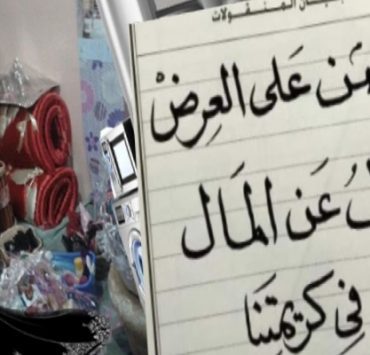 بيان المنقولات
عَلى العِرضْ
عَن المَال
فِي كَرِيمَتِنَا